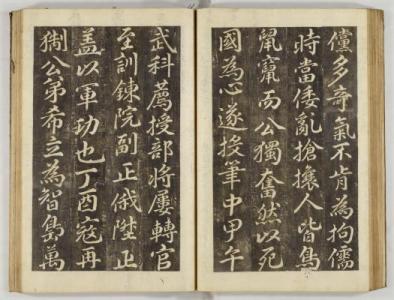 儻多奇氣不肯為拘儒
時當倭亂搶攘人皆鳥
鼠竄而公獨奮然以死
國為心遂投筆中甲午
武科薦授部將屢轉官
至訓鍊院副正俄陞正
盖以軍功也丁酉寇再
猘公弟希立為智島萬